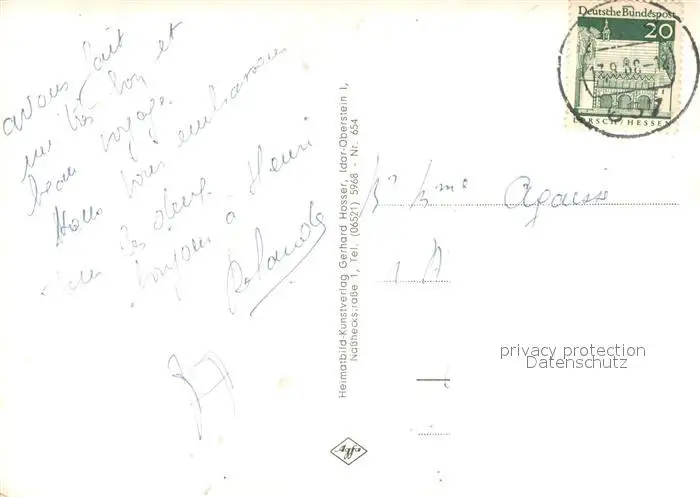 avons fait
un très bon et
beau voyage.
Nous vous embrassons
tous les deux.
bonjour à Henri
Heimatbild-Kunstverlag Gerhard Hosser, Idar-Oberstein 1,
Naßheckstraße 1, Tel. (06521) 5968 - Nr. 654
Agfa
Deutsche Bundespost
20
LORSCH/HESSEN
Mme
privacy protection
Datenschutz